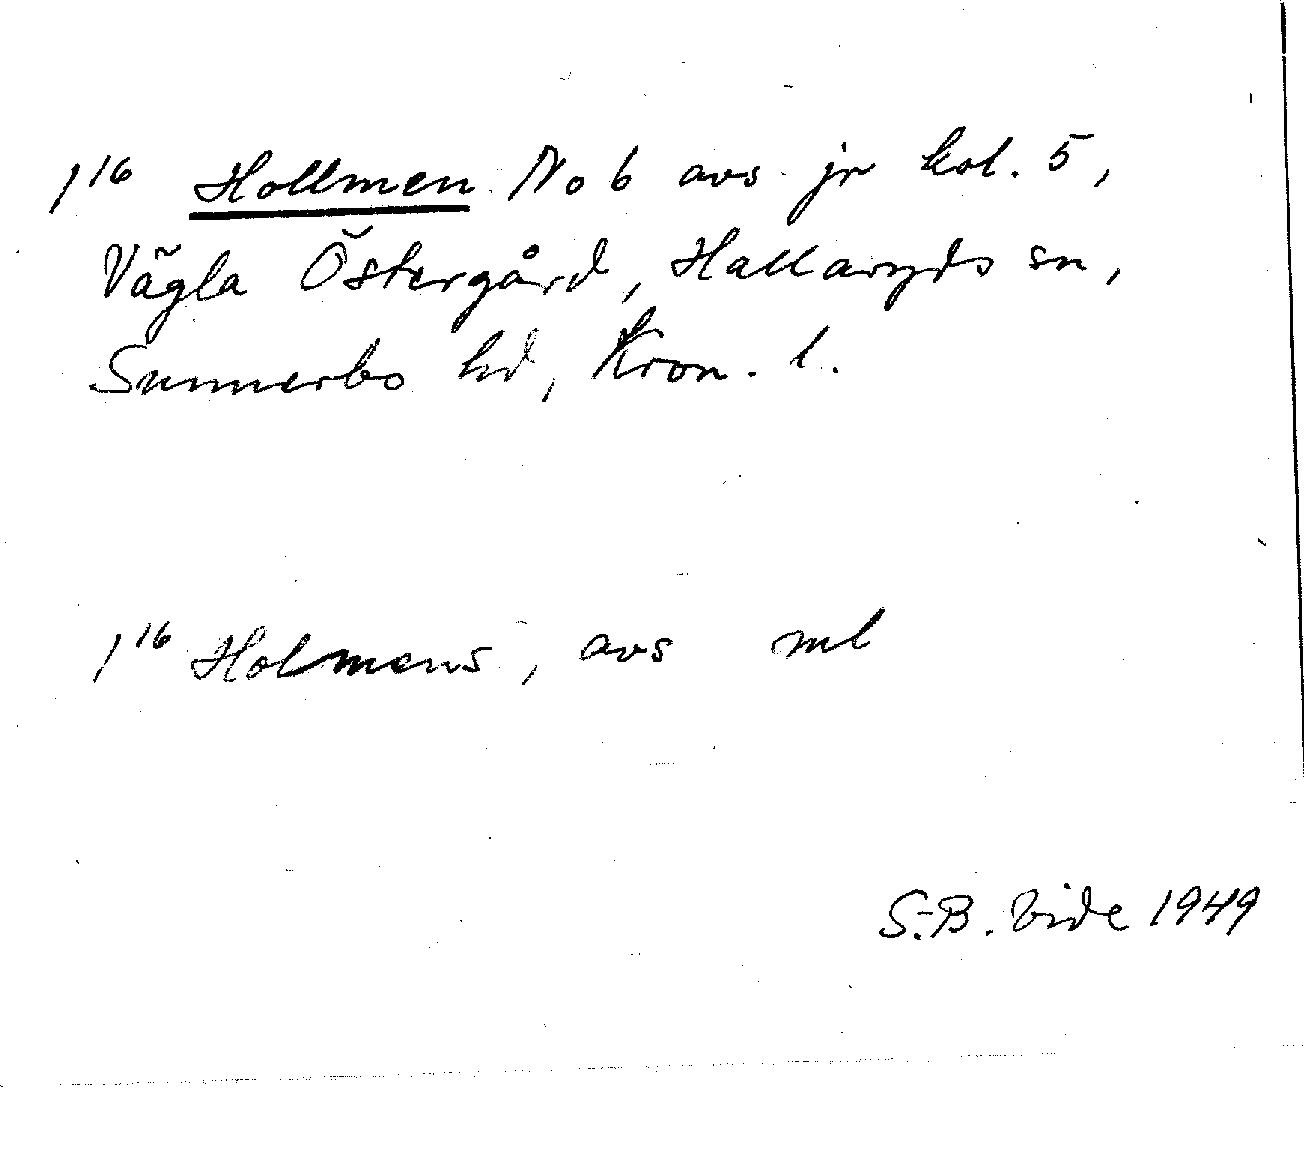 1¹⁶ Hollmen No 6 avs jr kol. 5,
Vägla Östergård, Hallaryds sn,
Sunnerbo hd, Kron. l.
1¹⁶ Holmens, avs ml
S.-B. Vide 1949